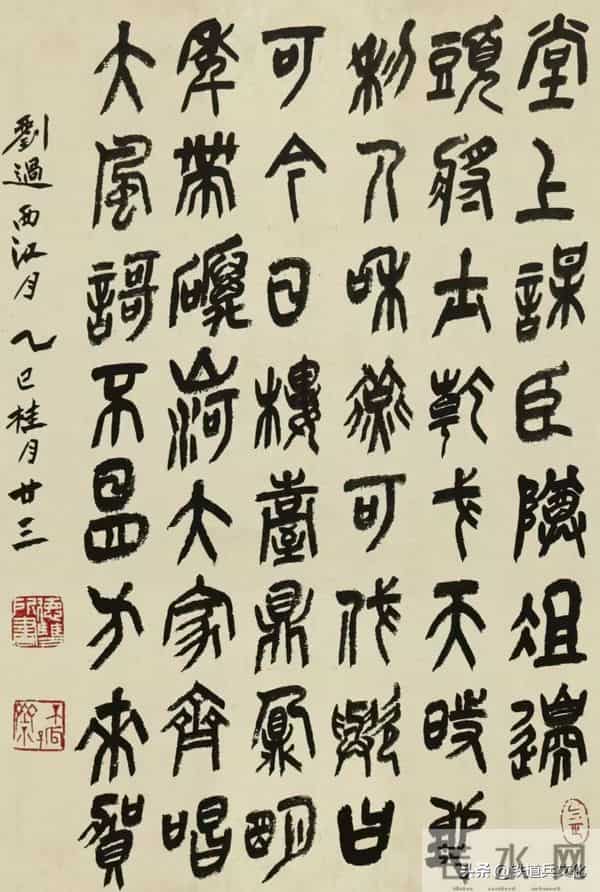 堂上謀臣尊俎邊
頭將士乾戈天時地
利人和燕可伐歟曰
可今日樓臺鼎鼐明
年帶礪山河大家齊唱
大風謌不日四方來賀
劉過西江月 乙巳桂月廿三
头条 @铁道兵文化